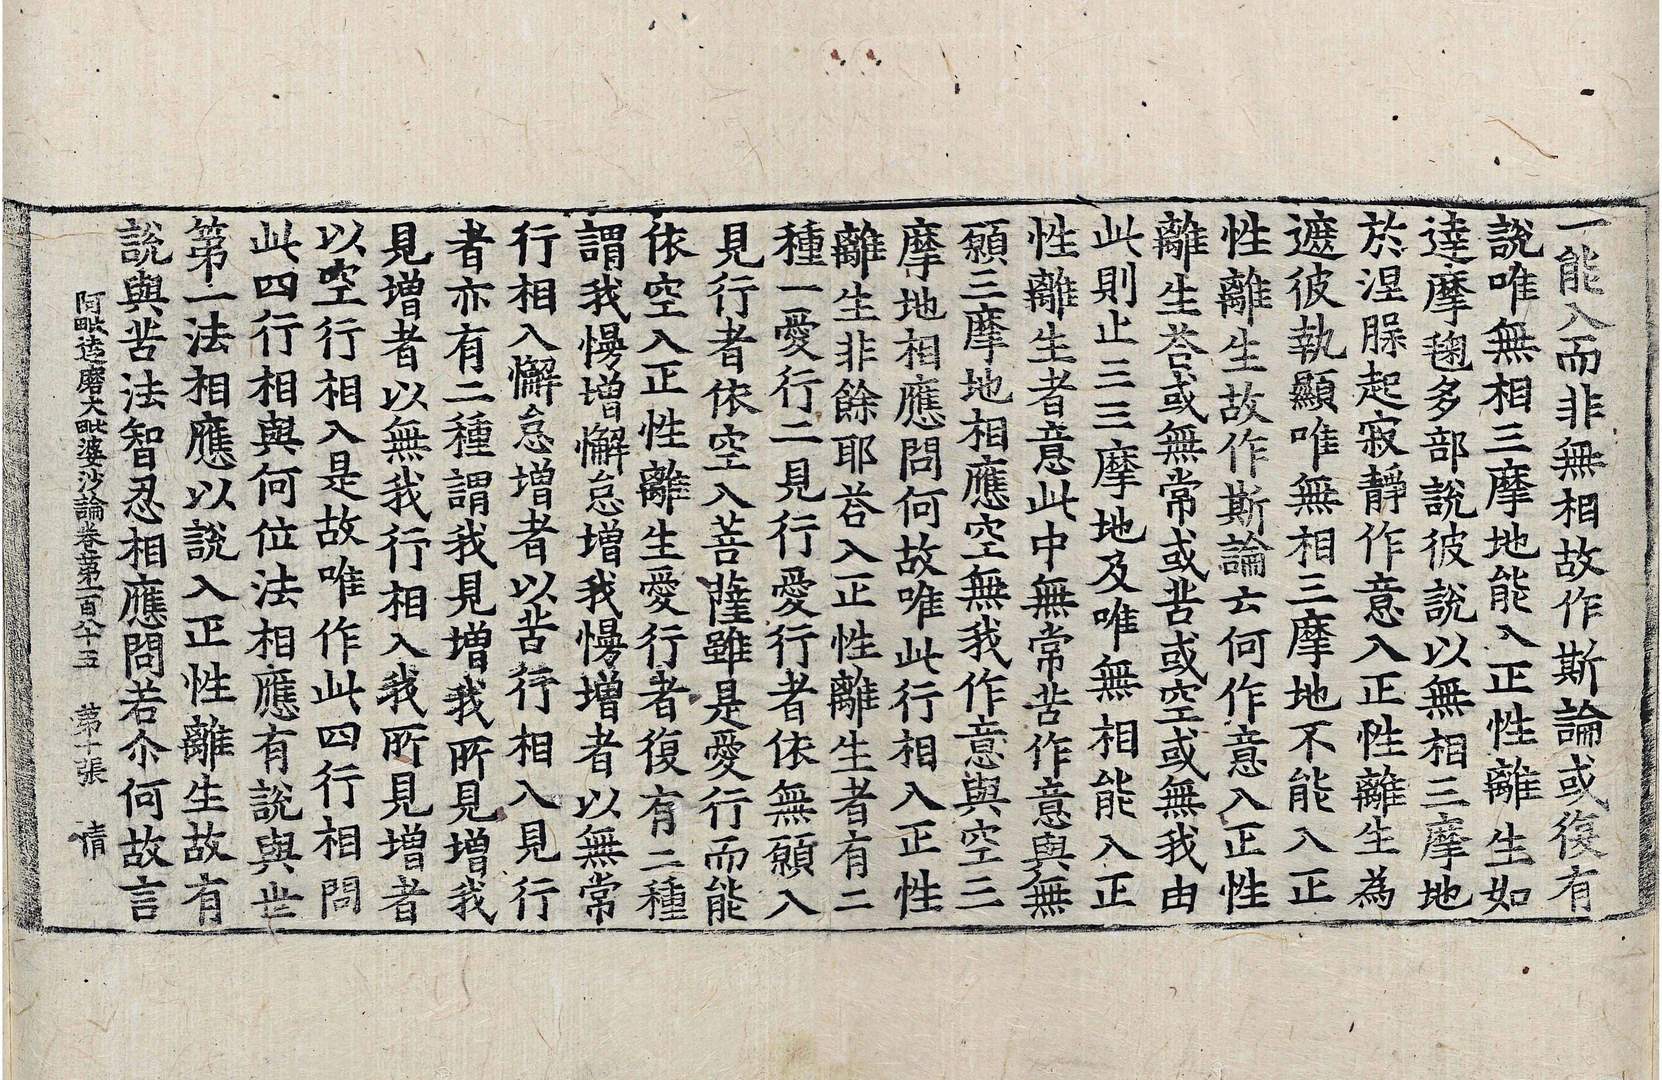 一能入而非無相故作斯論或復有
說唯無相三摩地能入正性離生如
達摩毱多部說彼說以無相三摩地
於涅脲起寂靜作意入正性離生為
遮彼執顯唯無相三摩地不能入正
性離生故作斯論云何作意入正性
離生荅或無常或苦或空或無我由
此則止三三摩地及唯無相能入正
性離生者意此中無常苦作意與無
願三摩地相應空無我作意與空三
摩地相應問何故唯此行相入正性
離生非餘耶荅入正性離生者有二
種一愛行二見行愛行者依無願入
見行者依空入菩薩雖是愛行而能
依空入正性離生愛行者復有二種
謂我慢增懈怠增我慢增者以無常
行相入懈怠增者以苦行相入見行
者亦有二種謂我見增我所見增我
見增者以無我行相入我所見增者
以空行相入是故唯作此四行相問
此四行相與何位法相應有說與世
第一法相應以說入正性離生故有
說與苦法智忍相應問若尒何故言
阿毗達磨大毗婆沙論卷第一百八十五 第十張 情